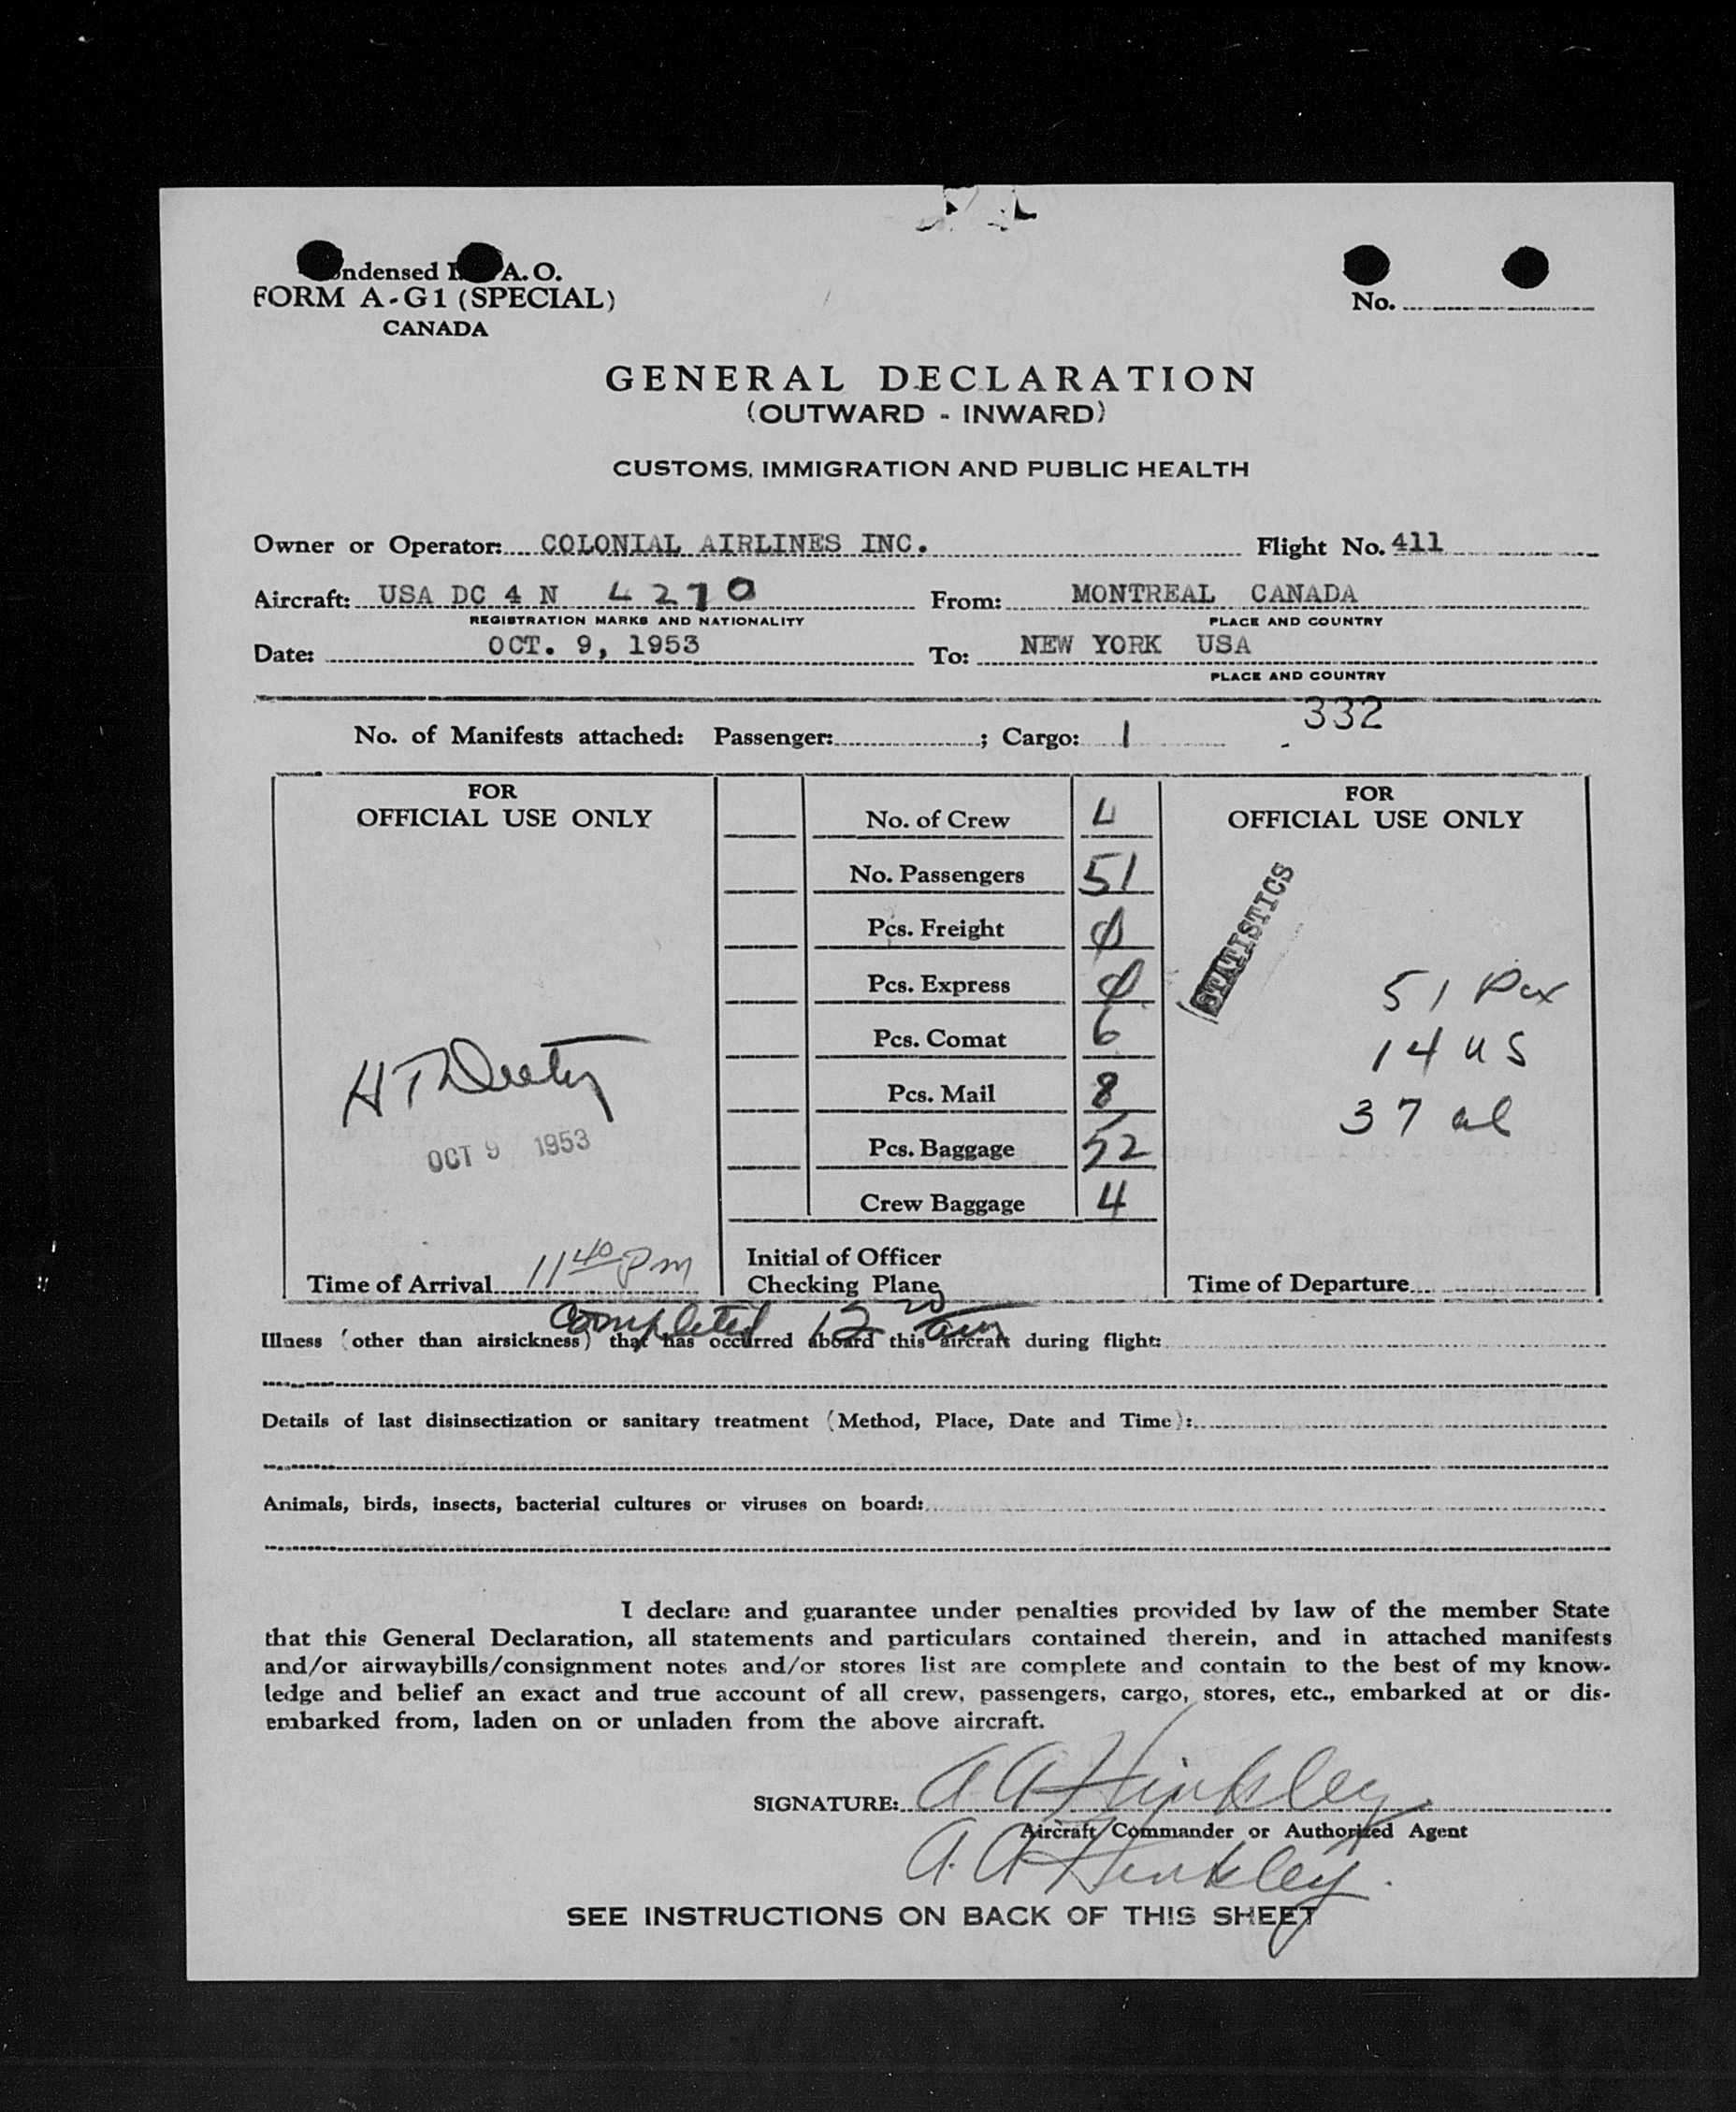 ndensed I. A. O.
FORM A-G1 (SPECIAL)
CANADA
No.
GENERAL DECLARATION
(OUTWARD - INWARD)
CUSTOMS, IMMIGRATION AND PUBLIC HEALTH
Owner or Operator: COLONIAL AIRLINES INC. Flight No. 411
Aircraft: USA DC 4 N 4270 From: MONTREAL CANADA
REGISTRATION MARKS AND NATIONALITY PLACE AND COUNTRY
Date: OCT. 9, 1953 To: NEW YORK USA
PLACE AND COUNTRY
332
No. of Manifests attached: Passenger: ; Cargo: 1
FOR
OFFICIAL USE ONLY
OCT 9 1953
Time of Arrival 11 40 Pm
No. of Crew 4
No. Passengers 51
Pcs. Freight 0
Pcs. Express 0
Pcs. Comat 6
Pcs. Mail 8
Pcs. Baggage 52
Crew Baggage 4
Initial of Officer
Checking Plane
FOR
OFFICIAL USE ONLY
STATISTICS
51 Pax
14 US
37 al
Time of Departure
Completed 12 20 am
Illness (other than airsickness) that has occurred aboard this aircraft during flight:
Details of last disinsectization or sanitary treatment (Method, Place, Date and Time):
Animals, birds, insects, bacterial cultures or viruses on board:
I declare and guarantee under penalties provided by law of the member State
that this General Declaration, all statements and particulars contained therein, and in attached manifests
and/or airwaybills/consignment notes and/or stores list are complete and contain to the best of my know-
ledge and belief an exact and true account of all crew, passengers, cargo, stores, etc., embarked at or dis-
embarked from, laden on or unladen from the above aircraft.
SIGNATURE: A A Hinkley
Aircraft Commander or Authorized Agent
A. A Hinkley.
SEE INSTRUCTIONS ON BACK OF THIS SHEET